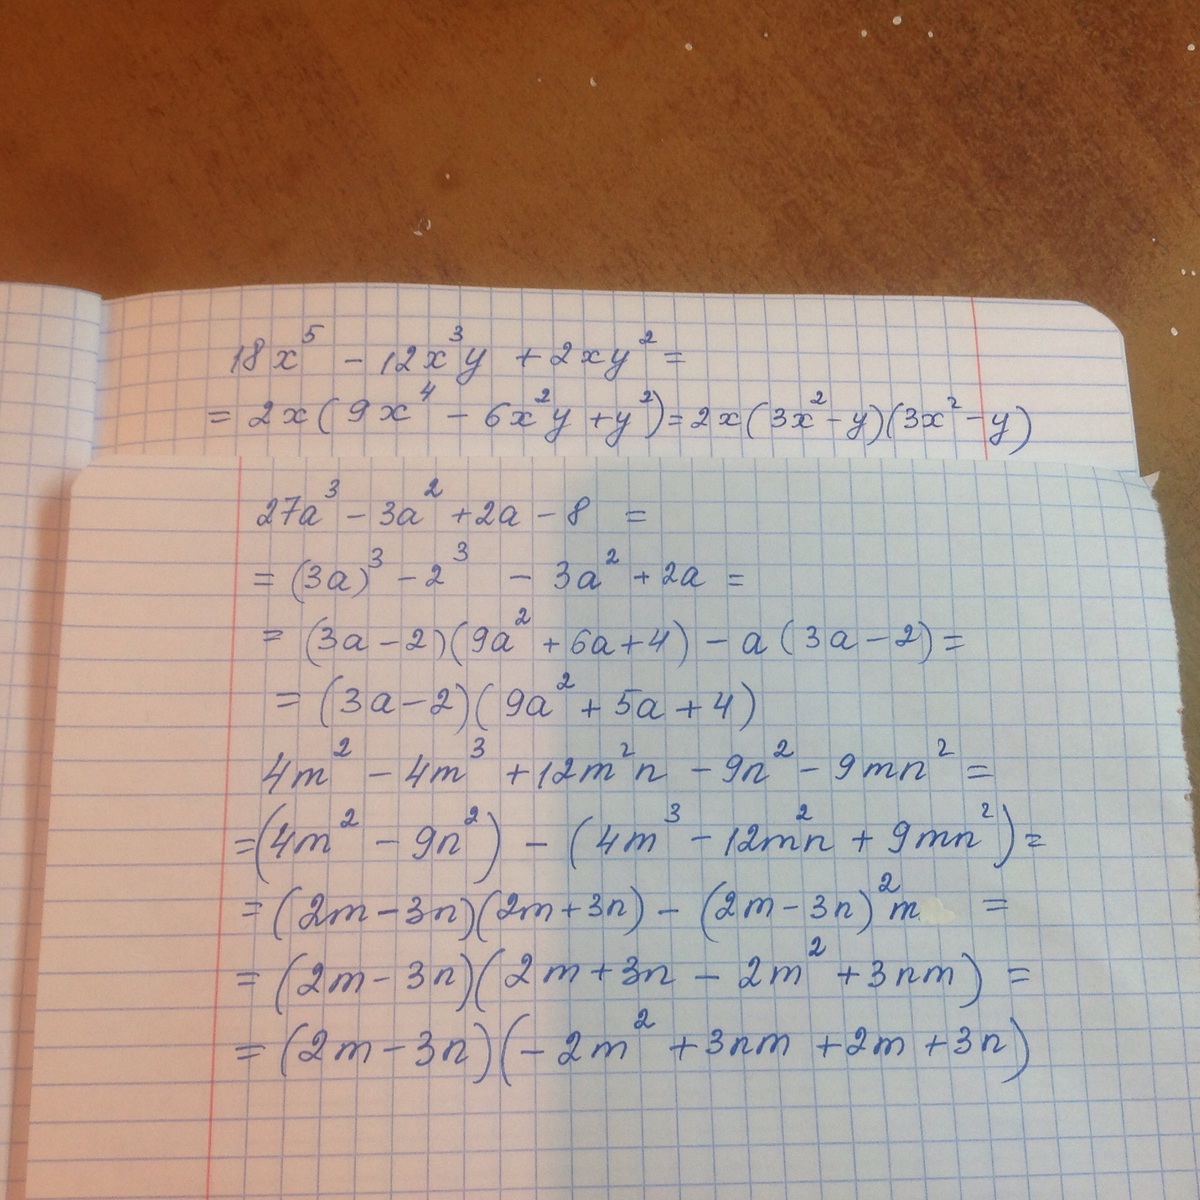 18x⁵ - 12x³y + 2xy² =
= 2x(9x⁴ - 6x²y + y²) = 2x(3x² - y)(3x² - y)
27a³ - 3a² + 2a - 8 =
= (3a)³ - 2³ - 3a² + 2a =
= (3a - 2)(9a² + 6a + 4) - a(3a - 2) =
= (3a - 2)(9a² + 5a + 4)
4m² - 4m³ + 12m²n - 9n² - 9mn² =
= (4m² - 9n²) - (4m³ - 12m²n + 9mn²) =
= (2m - 3n)(2m + 3n) - (2m - 3n)²m =
= (2m - 3n)(2m + 3n - 2m² + 3nm) =
= (2m - 3n)(-2m² + 3nm + 2m + 3n)